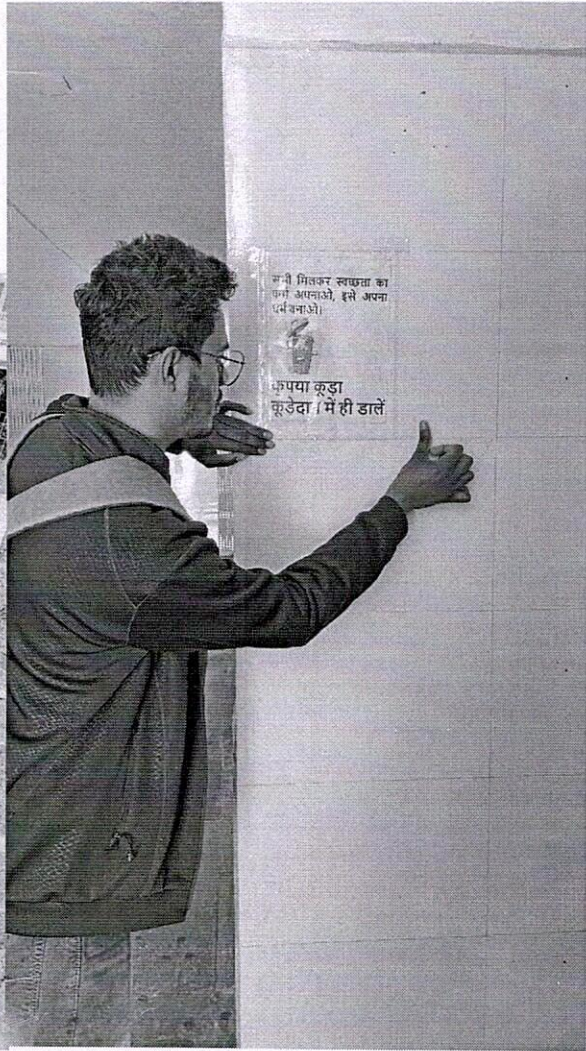 सभी मिलकर स्वच्छता का
कर्म अपनाओ, इसे अपना
धर्म बनाओ।
कृपया कूड़ा
कूड़ेदान में ही डालें